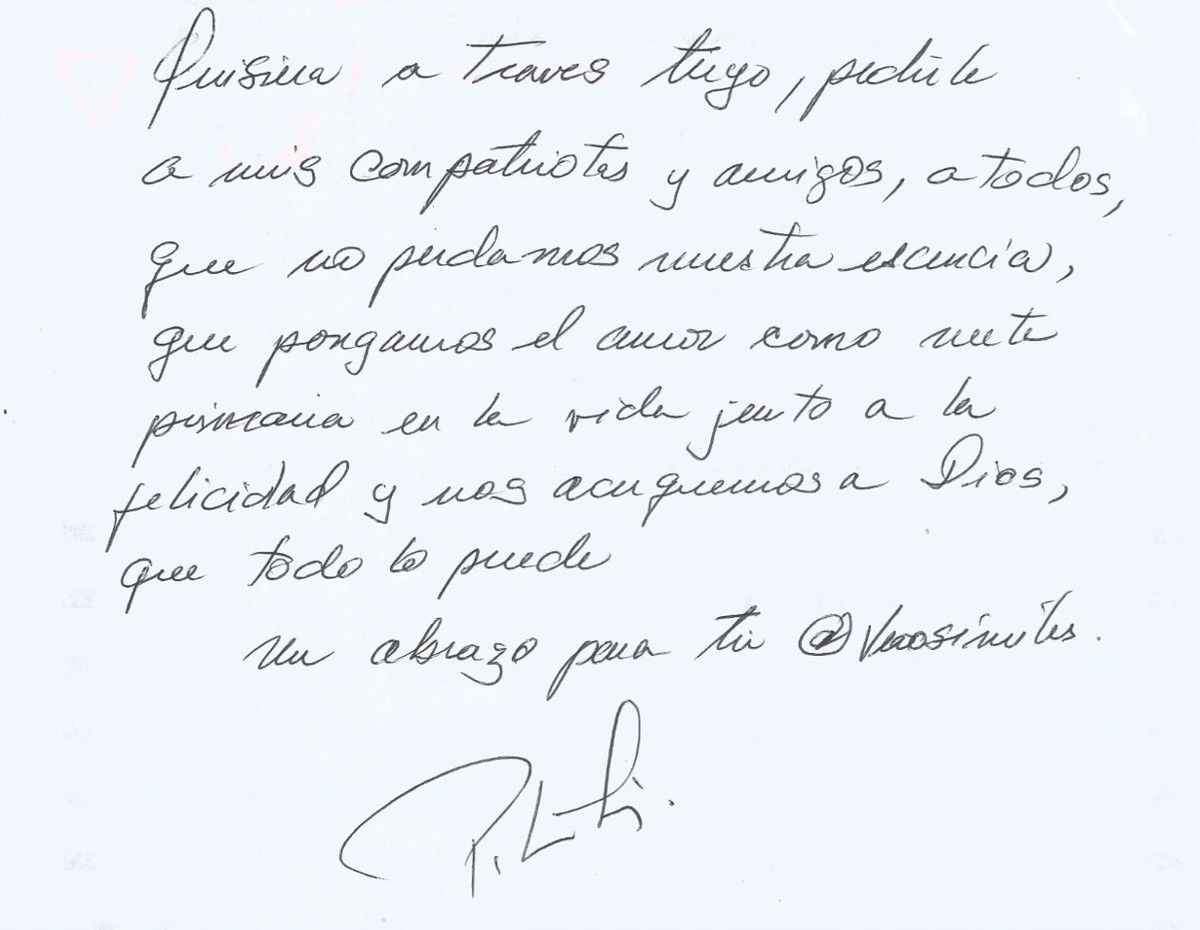 Quisiera a traves tuyo, pedirle
a mis compatriotas y amigos, a todos,
que no perdamos nuestra escencia,
que pongamos el amor como meta
primaria en la vida junto a la
felicidad y nos acerquemos a Dios,
que todo lo puede
Un abrazo para tu @Verosimiles.